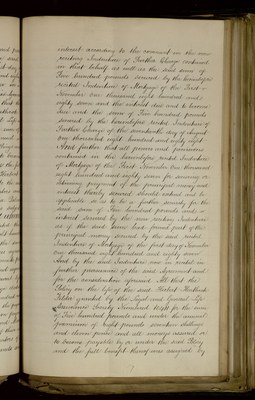 interest according to the covenant in the now
reciting Indenture of Further Charge contained
in that behalf as well as the said sum of
Five hundred pounds secured by the hereinbefore
recited Indenture of Mortgage of the First
November One thousand eight hundred and
eighty seven and the interest due and to become
due and the sum of Five hundred pounds
secured by the hereinbefore recited Indenture of
Further Charge of the day of August
One thousand eight hundred and eighty eight
And further that all powers and provisions
contained in the hereinbefore recited Indenture
of Mortgage of the First November One thousand
eight hundred and eighty seven for securing or
obtaining payment of the principal money and
interest thereby secured should extend and be
applicable so as to be a further security for the
said sum of Five hundred pounds and
interest secured by the now reciting Indenture
as if the same had formed part of the
principal money secured by the said recited
Indenture of Mortgage of the first day of November
One thousand eight hundred and eighty seven
And by the said Indenture now in recital in
further pursuance of the said Agreement and
for the consideration aforesaid All that the
Policy on the life of the said Herbert
granted by the Legal and General Life
Assurance Society Numbered for the sum
of Five hundred pounds and under the annual
premium of Eight pounds seventeen shillings
and eleven pence and all moneys assured or
to become payable by or under the said Policy
and the full benefit thereof was assigned by